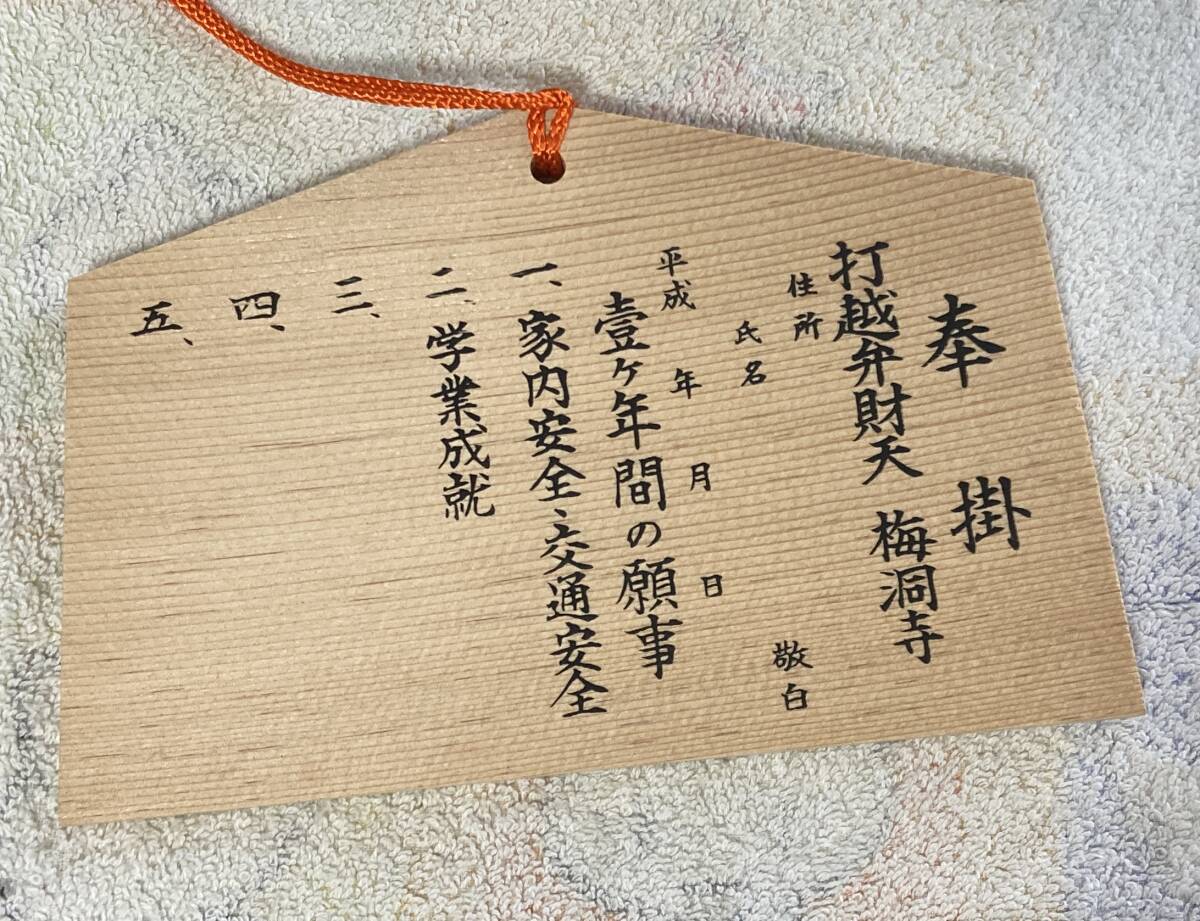 奉掛
打越弁財天 梅洞寺
住所
氏名 敬白
平成 年 月 日
壹ヶ年間の願事
一、家内安全、交通安全
二、学業成就
三、
四、
五、